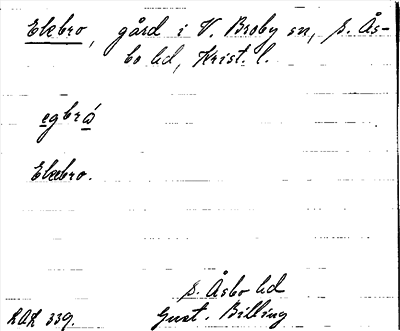 Ekebro, gård i V. Broby sn, S. Ås-
bo hd, Krist. l.
egbrå
Ekebro.
S. Åsbo hd
RAÄ 339. Gust. Billing